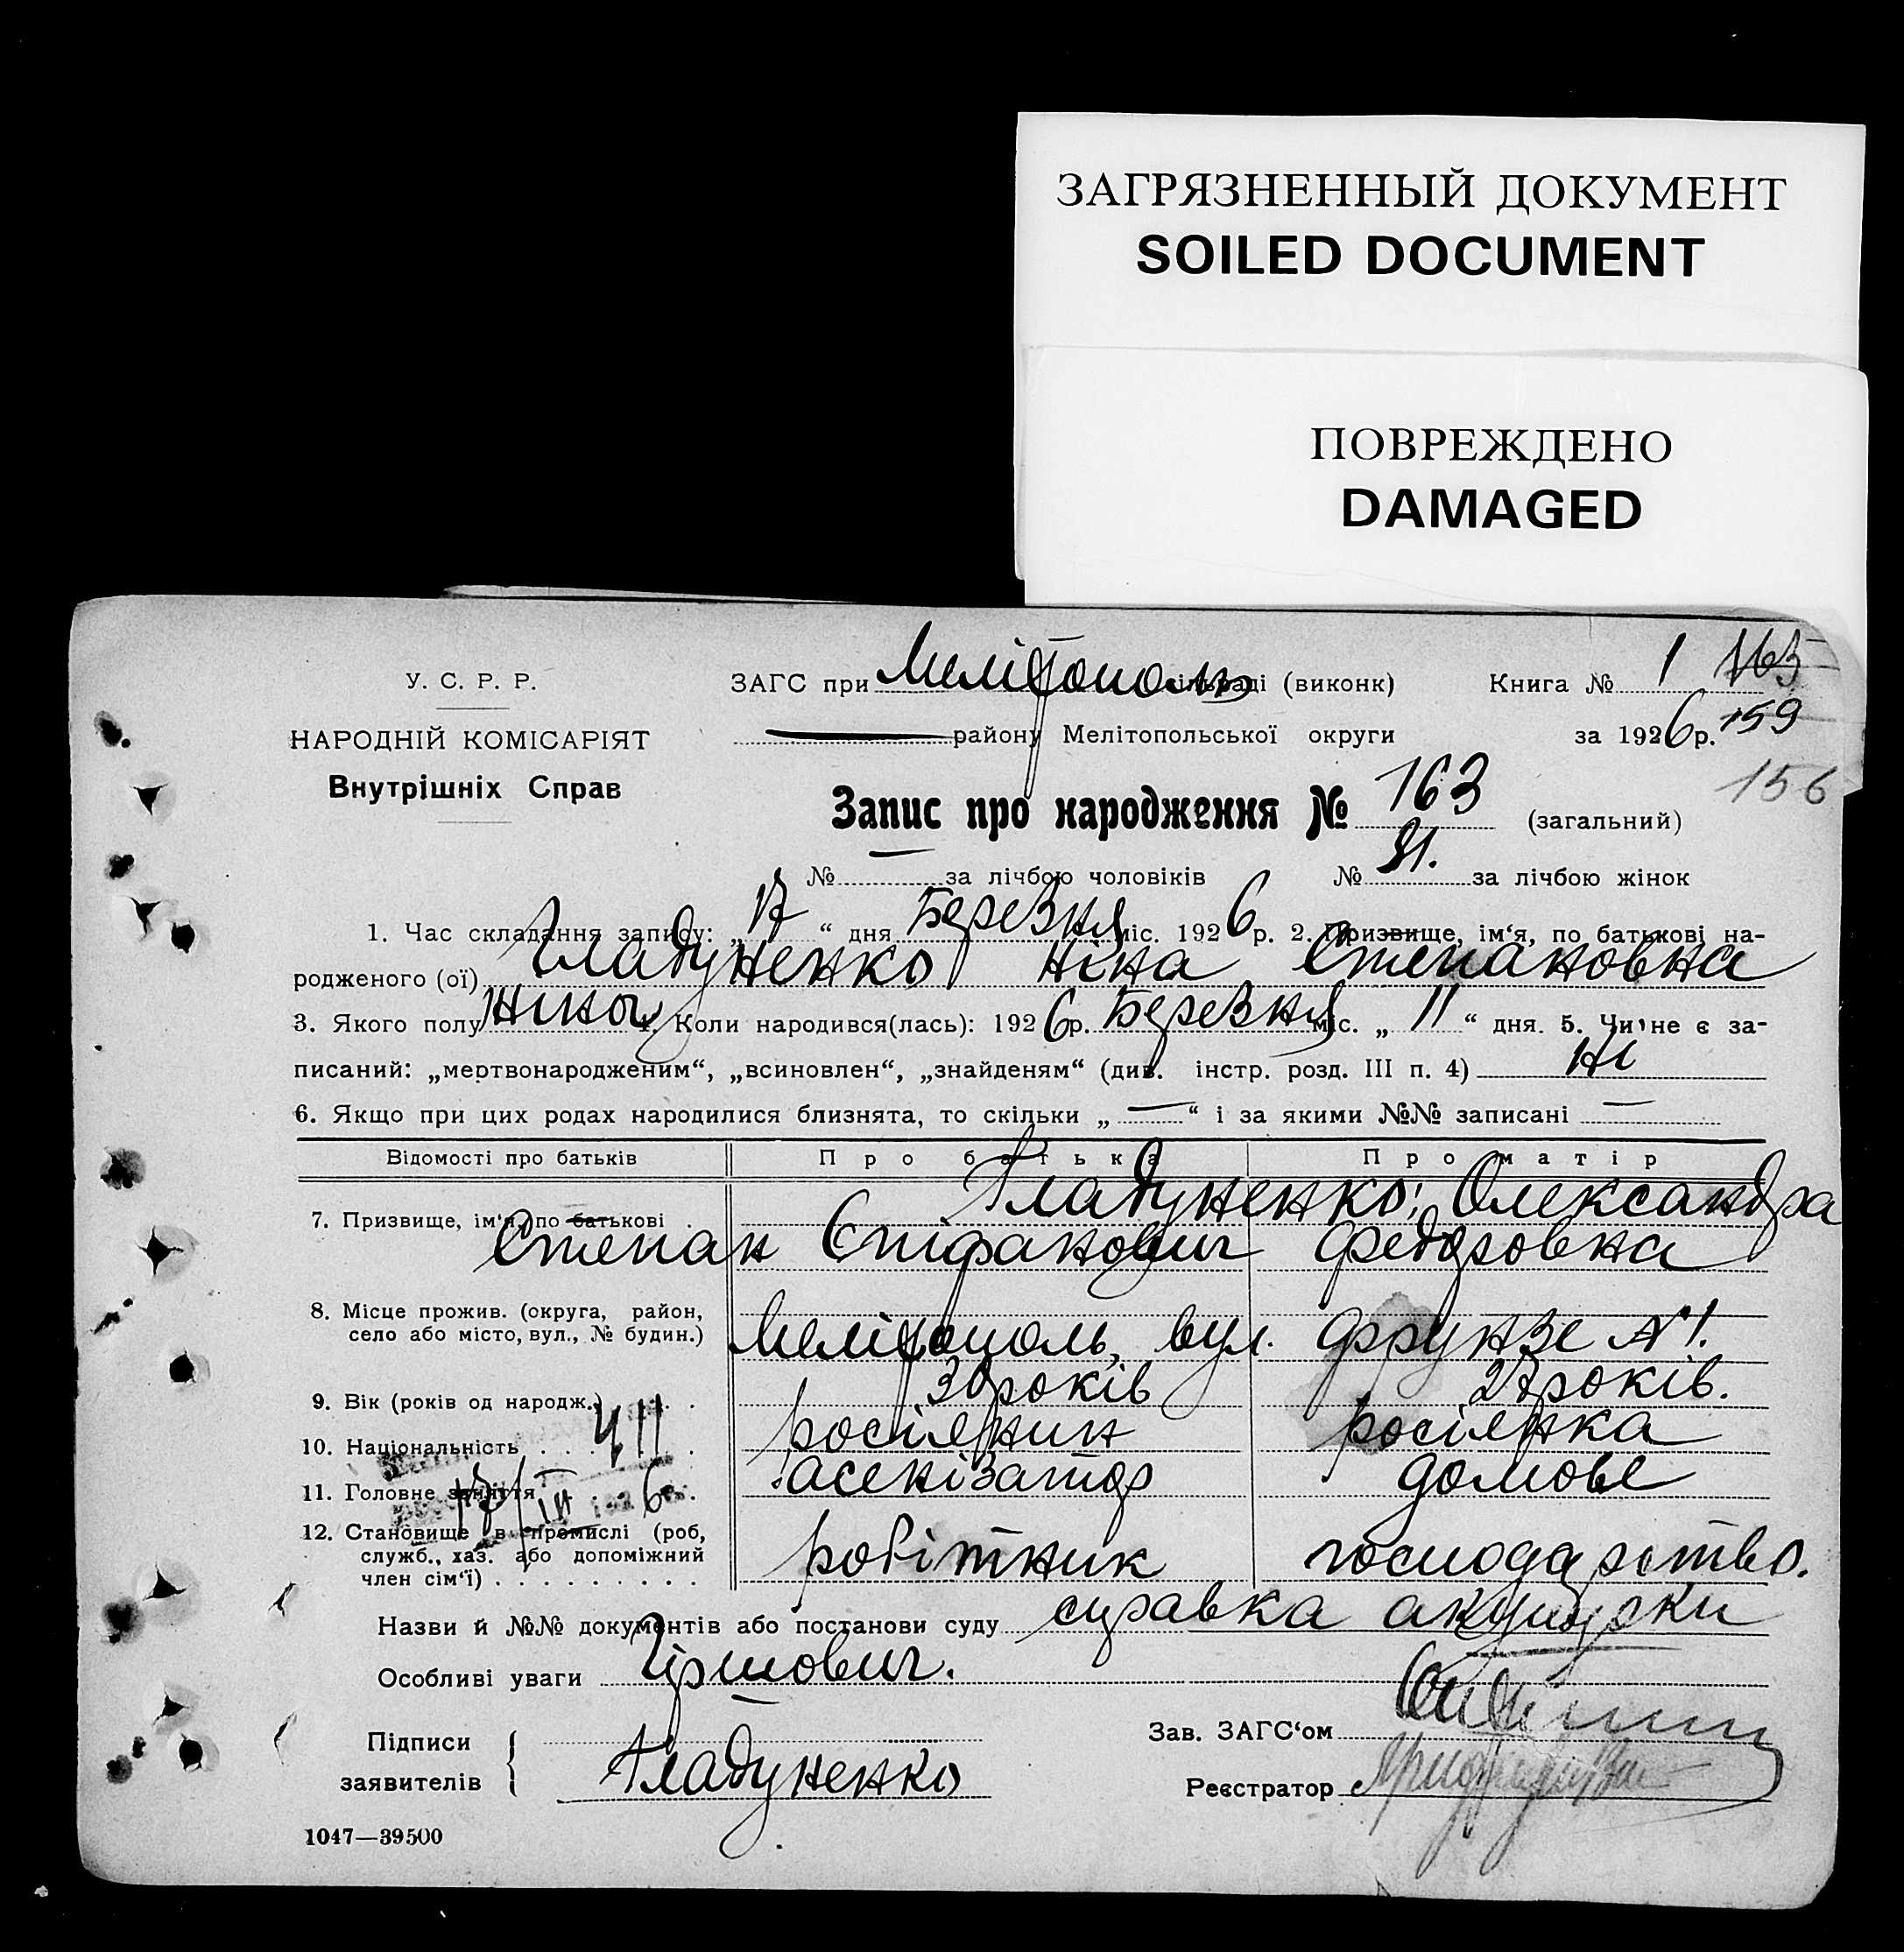 ЗАГРЯЗНЕННЫЙ ДОКУМЕНТ
SOILED DOCUMENT
ПОВРЕЖДЕНО
DAMAGED
У. С. Р. Р.
НАРОДНІЙ КОМІСАРІЯТ
Внутрішніх Справ
ЗАГС при Мелітополь сільраді (виконк) Книга № 1 163
району Мелітопольської округи за 1926 р. 159
156
Запис про народження № 163 (загальний)
№ — за лічбою чоловіків № 81. за лічбою жінок
1. Час складання запису: „17“ дня Березня міс. 1926 р. 2. Призвище, ім‘я, по батькові на-
родженого (ої) Гладуненко Ніна Степановна
3. Якого полу жіноч 4. Коли народився(лась): 1926 р. Березня міс. „11“ дня. 5. Чи не є за-
писаний: „мертвонародженим“, „всиновлен“, „знайденям“ (див. інстр. розд. III п. 4) ні
6. Якщо при цих родах народилися близнята, то скільки „—“ і за якими №№ записані —
Відомості про батьків Про батька Про матір
7. Призвище, ім‘я, по батькові . Гладуненко: Олександра
Степан Єпіфанович Федоровна
8. Місце прожив. (округа, район,
село або місто, вул., № будин.) Мелітополь, вул. Фрунзе №1.
9. Вік (років од народж.) . . 30 років 27 років.
10. Національність . . . росіянин росіянка
11. Головне заняття . . . асенізатор домове
12. Становище в промислі (роб,
служб., хаз. або допоміжний
член сім‘ї) . . . . . . . . . робітник господарство.
ЧІІ
17/III 1926
Назви й №№ документів або постанови суду справка акушерки
Особливі уваги Гіршович.
Підписи
заявителів
Гладуненко
Зав. ЗАГС‘ом
Реєстратор
1047—39500